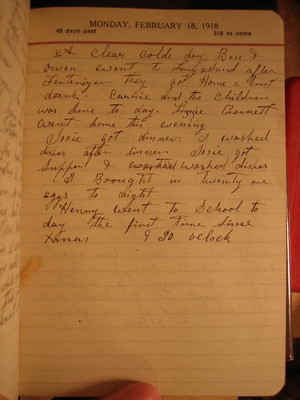 MONDAY, FEBRUARY 18, 1918
49 days past 316 to come
A Clear colde day Ben &
Owen went to Long Island after
they got Home a bout
dark. Carrie and the Children
was here to day. Lizzie Bennett
went home this evening
Josie got dinner. I washed
dishes after dinner Josie got
Supper & I washed dishes
I Brought in twenty one
eggs to night
Henny went to School to
day the first time Since
Xmas 9 30 oclock